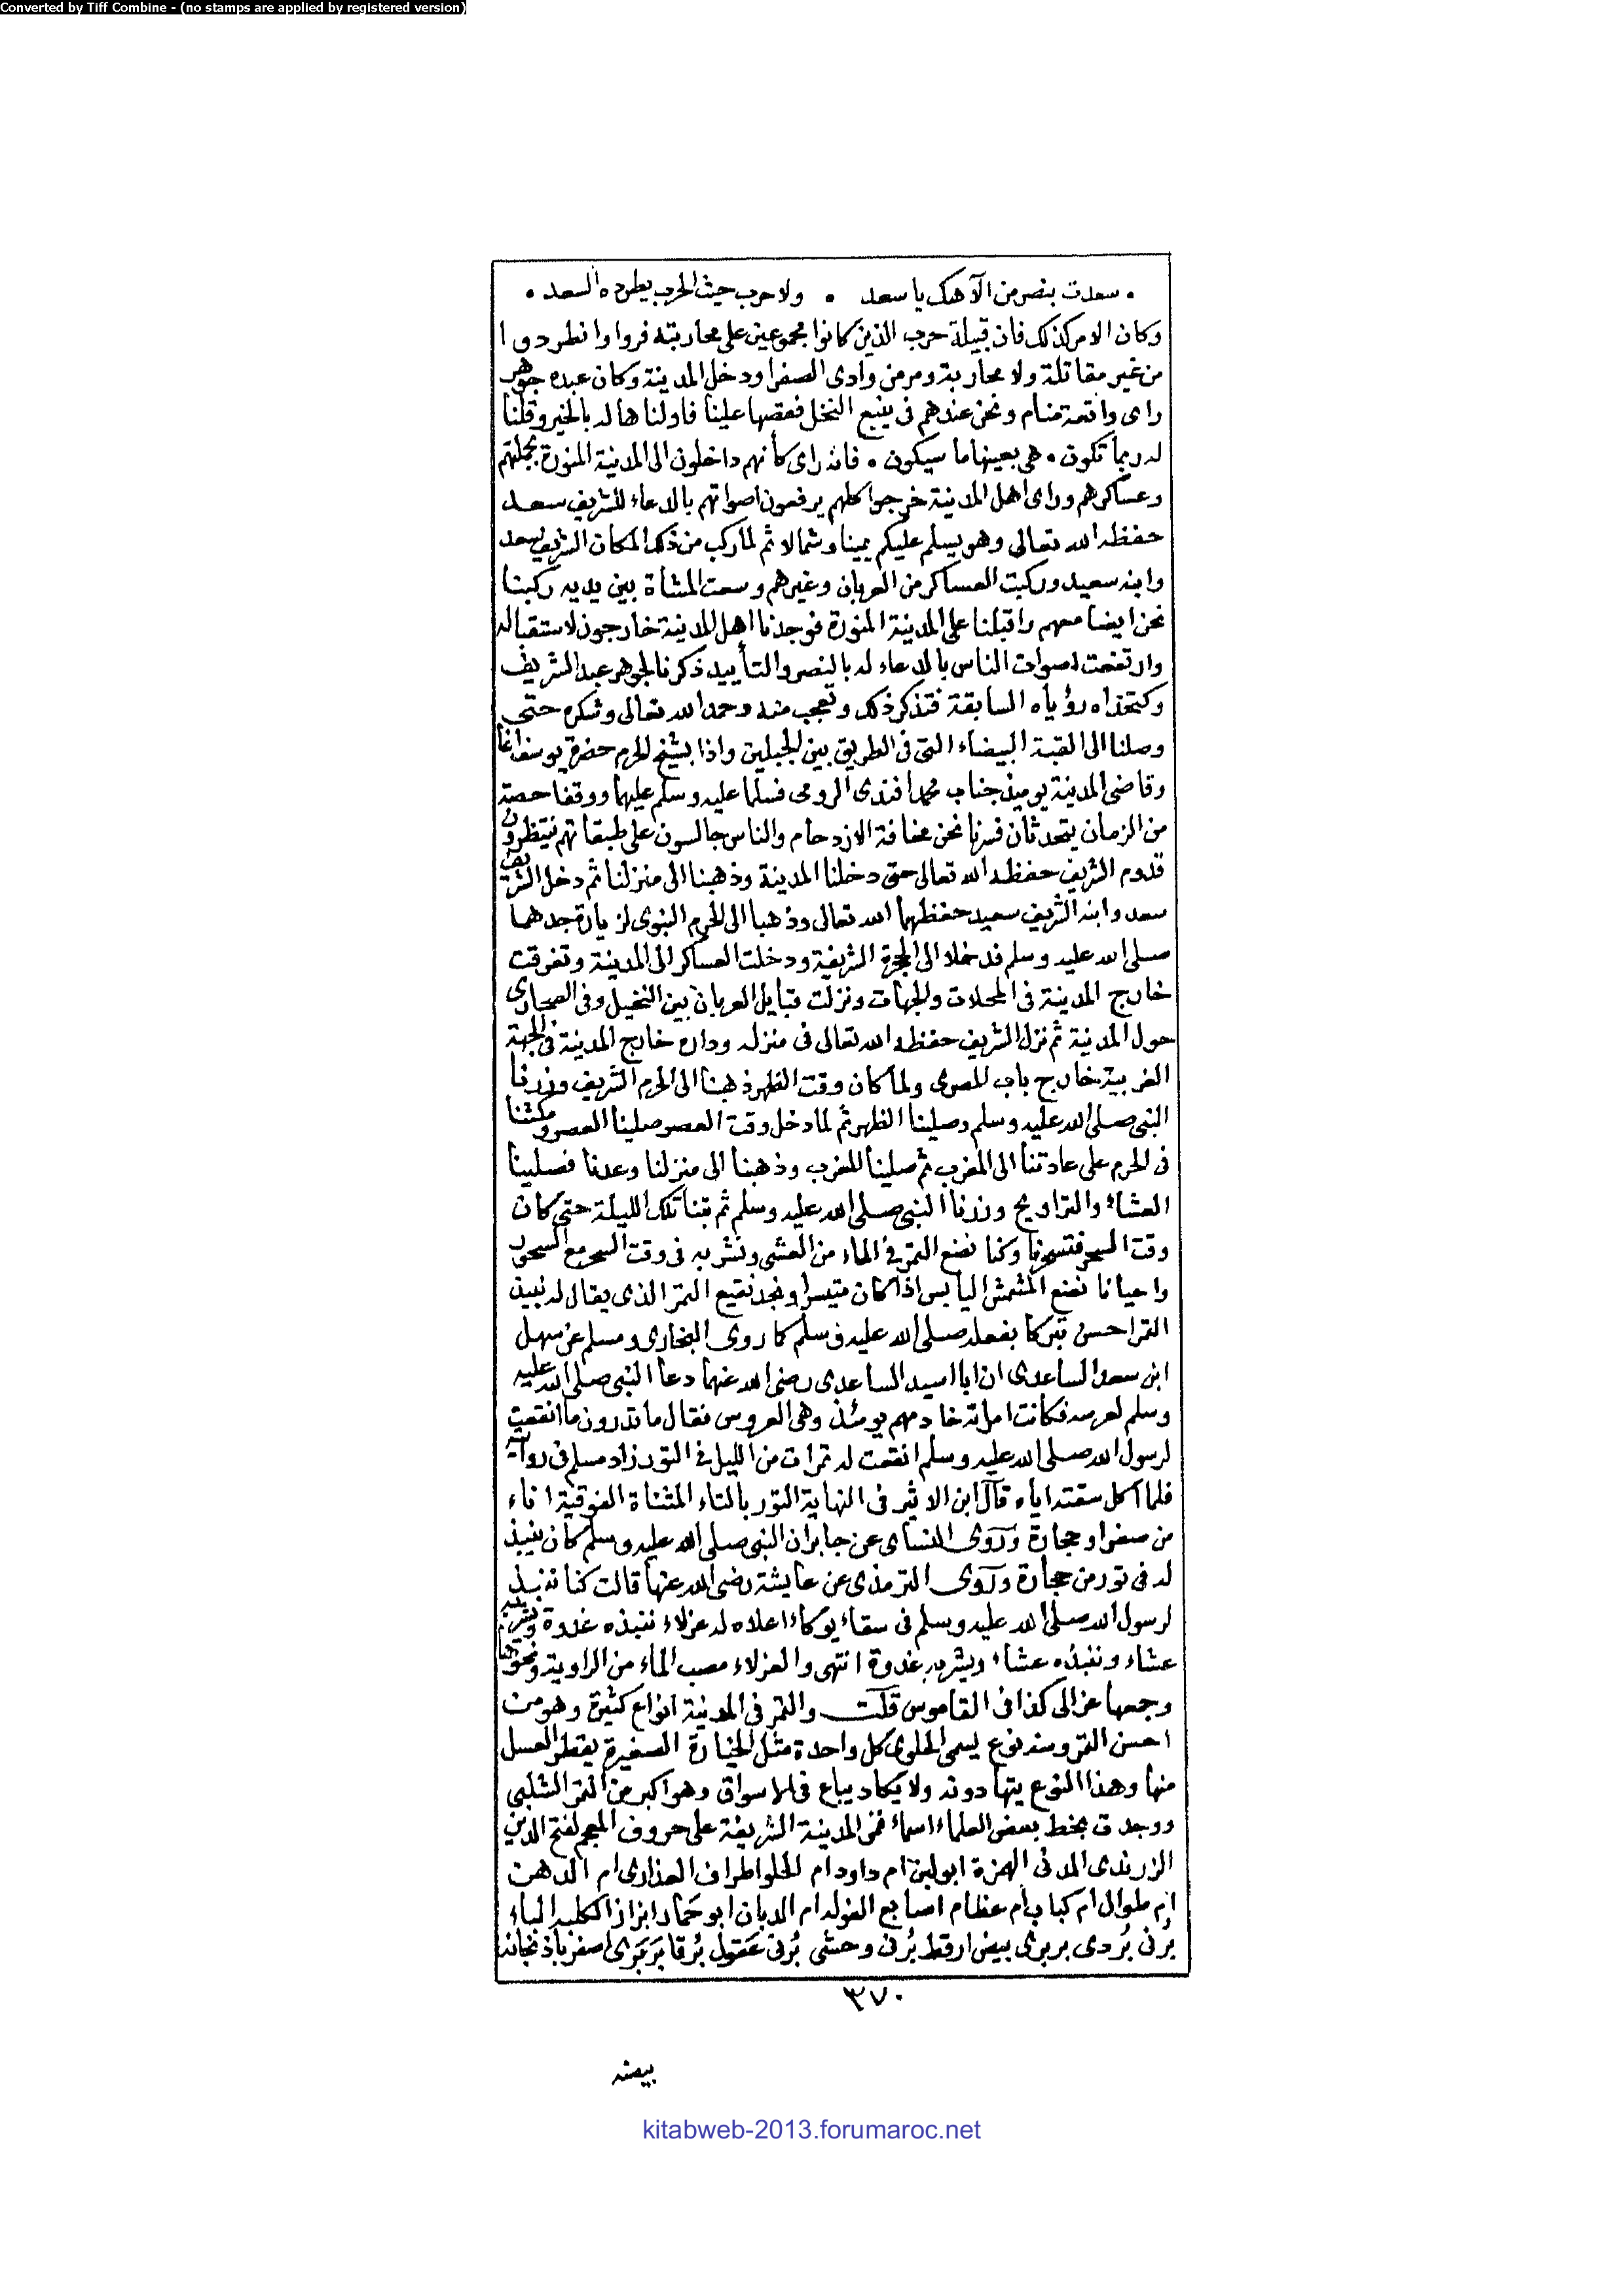 Converted by Tiff Combine - (no stamps are applied by registered version)
• سعدت بنصر من الآهك يا سعد • ولا حرب حيث الحرب يطرده السعد •
وكان الامر كذلك فان قبيلة حرب الذين كانوا مجموعين على محاربته فروا وانطردوا
من غير مقاتلة ولا محاربة ومر من وادى الصفرا ودخل المدينة وكان عبده جوهر
راى واقعة منام ونحن عندهم فى ينبع النخل فقصها علينا فاولناها له بالخير وقلنا
له ربما تكون • هى بعينها ما سيكون • فانه راى كأنهم داخلون الى المدينة المنورة بجملتهم
وعساكرهم وراى اهل المدينة خرجوا كلهم يرفعون اصواتهم بالدعاء للشريف سعد
حفظه الله تعالى وهو يسلم عليكم يمينا وشمالا ثم لما ركب من ذلك المكان الشريف سعد
وابنه سعيد وركبت العساكر من العربان وغيرهم وسعت المشاة بين يديه ركبنا
نحن ايضا معهم واقبلنا على المدينة المنورة فوجدنا اهل المدينة خارجون لاستقباله
وارتفعت اصوات الناس بالدعاء له بالنصر والتأييد ذكرنا لجوهر عبد الشريف
رؤياه السابقة فتذكر ذلك وتعجب منه وحمد الله تعالى وشكره حتى
وصلنا الى القبة البيضاء التى فى الطريق بين الجبلين واذا بشيخ الحرم حضرة يوسف اغا
وقاضى المدينة يوميذ جناب محمد افندى الرومى فسلما عليه وسلم عليهما ووقفا حصة
من الزمان يتحدثان فسرنا نحن مخافة الازدحام والناس جالسون على طبقاتهم ينتظرون
قدوم الشريف حفظه الله تعالى حتى دخلنا المدينة وذهبنا الى منزلنا ثم دخل الشريف
سعد وابنه الشريف سعيد حفظهما الله تعالى وذهبا الى الحرم النبوى لزيارة جدهما
صلى الله عليه وسلم فدخلا الى الحجرة الشريفة ودخلت العساكر الى المدينة وتفرقت
خارج المدينة فى المحلات والجهات ونزلت قبايل العربان بين النخيل وفى الصحارى
حول المدينة ثم نزل الشريف حفظه الله تعالى فى منزله وداره خارج المدينة فى الجهة
الغربية خارج باب المصرى ولما كان وقت الظهر ذهبنا الى الحرم الشريف وزرنا
النبى صلى الله عليه وسلم وصلينا الظهر ثم لما دخل وقت العصر صلينا العصر ومكثنا
فى الحرم على عادتنا الى المغرب ثم صلينا المغرب وذهبنا الى منزلنا وعدنا فصلينا
العشاء والتراويح وزرنا النبى صلى الله عليه وسلم ثم بتنا تلك الليلة حتى كان
وقت السحر فتسحرنا وكنا نضع التمر فى الماء من العشى ونشربه فى وقت السحر مع السحور
واحيانا نضع المشمش اليابس اذا كان متيسرا ونجد نقيع التمر الذى يقال له نبيذ
التمر احسن تبركا بفعله صلى الله عليه وسلم كما روى البخارى ومسلم عن سهل
ابن سعد الساعدى ان ابا اسيد الساعدى رضى الله عنهما دعا النبى صلى الله عليه
وسلم لعرسه فكانت امراته خادمهم يومئذ وهى العروس فقال ما تدرون ما انقعت
لرسول الله صلى الله عليه وسلم انقعت له تمرات من الليل فى التور زاد مسلم فى رواية
فلما اكل سقته اياه قال ابن الاثير فى النهاية التور بالتاء المثناة الفوقية اناء
من صفر او حجارة وروى النساى عن جابر ان النبى صلى الله عليه وسلم كان ينبذ
له فى تور من حجارة وروى الترمذى عن عايشة رضى الله عنها قالت كنا ننبذ
لرسول الله صلى الله عليه وسلم فى سقاء يوكاء اعلاه له عزلاء ننبذه غدوة ويشربه
عشاء وننبذه عشاء ويشربه غدوة انتهى والعزلاء مصب الماء من الراوية ونحوها
وجمعها عزالى كذا فى القاموس قلت والتمر فى المدينة انواع كثيرة وهو من
احسن التمر ومنه نوع يسمى الحلوى كل واحدة مثل الخيارة الصغيرة يقطر العسل
منها وهذا النوع يتهادونه ولا يكاد يباع فى الاسواق وهو اكبر من التمر الشلبى
ووجدت بخط بعض العلماء اسماء تمر المدينة الشريفة على حروف المعجم لفتح الدين
الزرندى المدنى الهمزة ابو لبن ام داود ام الحلو اطراف العذارى ام الدهن
ام طوال ام كباب ام عظام اصابع الغوله ام الديان ابو حماد ابزاز الكلبه الباء
برنى بردى بربرى بيض ارقط برنى وحشى برنى عقول برقا بربرى اصفر باذنجانه
٣٧٠
بيضه
kitabweb-2013.forumaroc.net